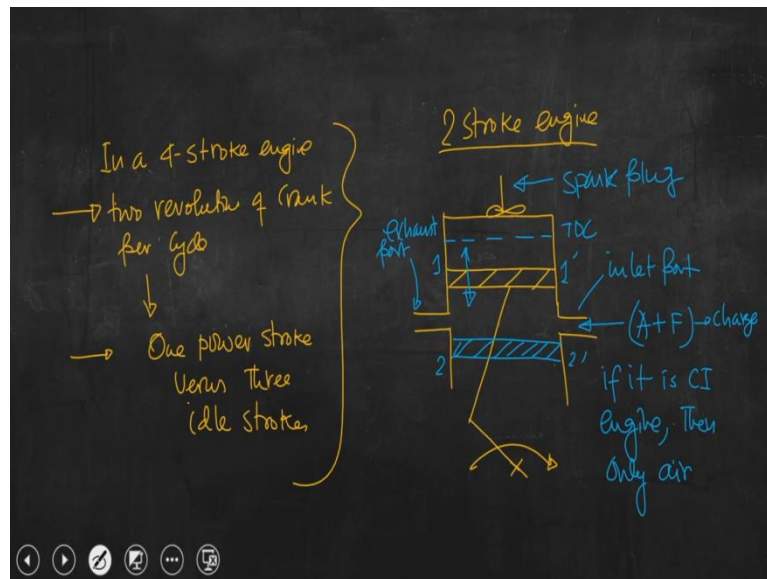 In a 4-stroke engine
two revolution of Crank
per Cycle
One power stroke
Verus Three
idle strokes
2 stroke engine
spark plug
exhaust
port
TDC
1
1'
inlet port
(A+F) → charge
2
2'
if it is CI
engine, Then
only air